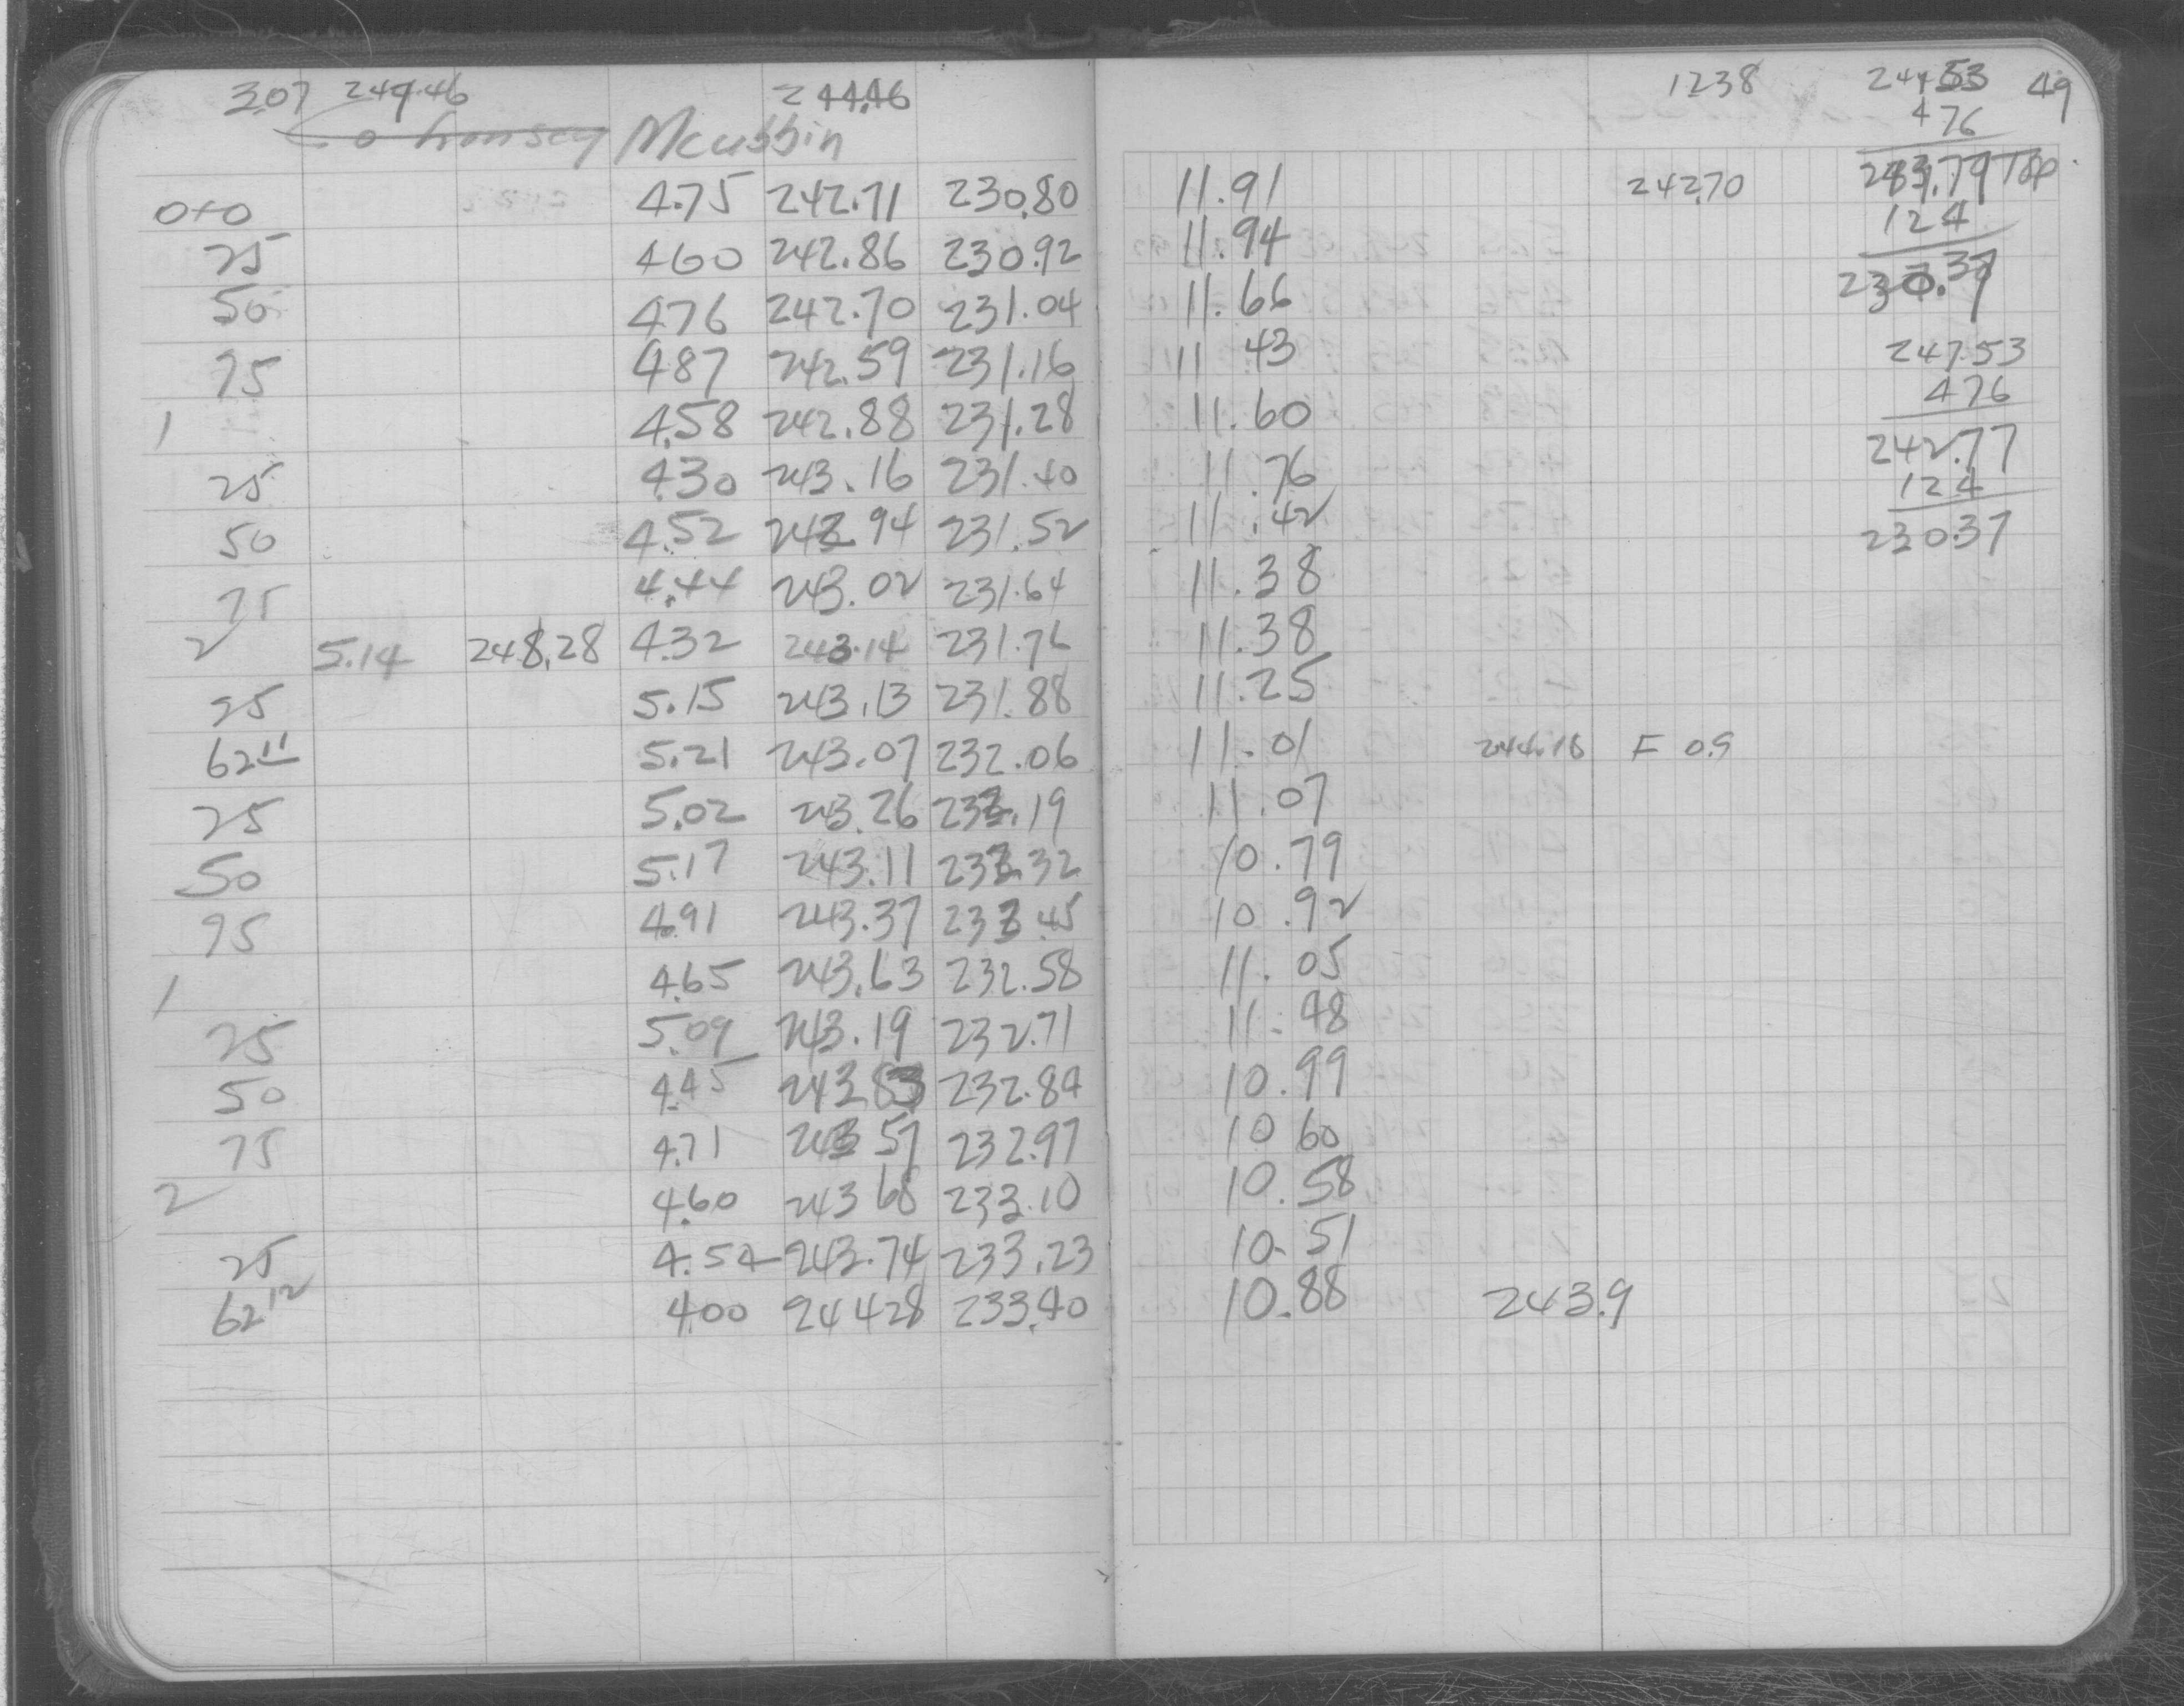 3.07 244.46 244.46 1238 244.53 49
Mcubbin 476
0+0 4.75 242.71 230.80 11.91 242.70 Top
124
25 4.60 242.86 230.92 11.94 230.37
50 4.76 242.70 231.04 11.66
75 4.87 242.59 231.16 11.43 247.53
476
1 4.58 242.88 231.28 11.60 242.77
25 4.30 243.16 231.40 11.76 124
50 4.52 242.94 231.52 11.42 230.37
75 4.44 243.02 231.64 11.38
2 5.14 248.28 4.32 243.14 231.76 11.38
25 5.15 243.13 231.88 11.25
62 11 5.21 243.07 232.06 11.01 244.18 F 0.9
25 5.02 243.26 232.19 11.07
50 5.17 243.11 232.32 10.79
75 4.91 243.37 232.45 10.92
1 4.65 243.63 232.58 11.05
25 5.09 243.19 232.71 11.48
50 4.45 243.83 232.84 10.99
75 4.71 243.57 232.97 10.60
2 4.60 243.68 233.10 10.58
25 4.54 243.74 233.23 10.51
62 12 4.00 244.28 233.40 10.88 243.9